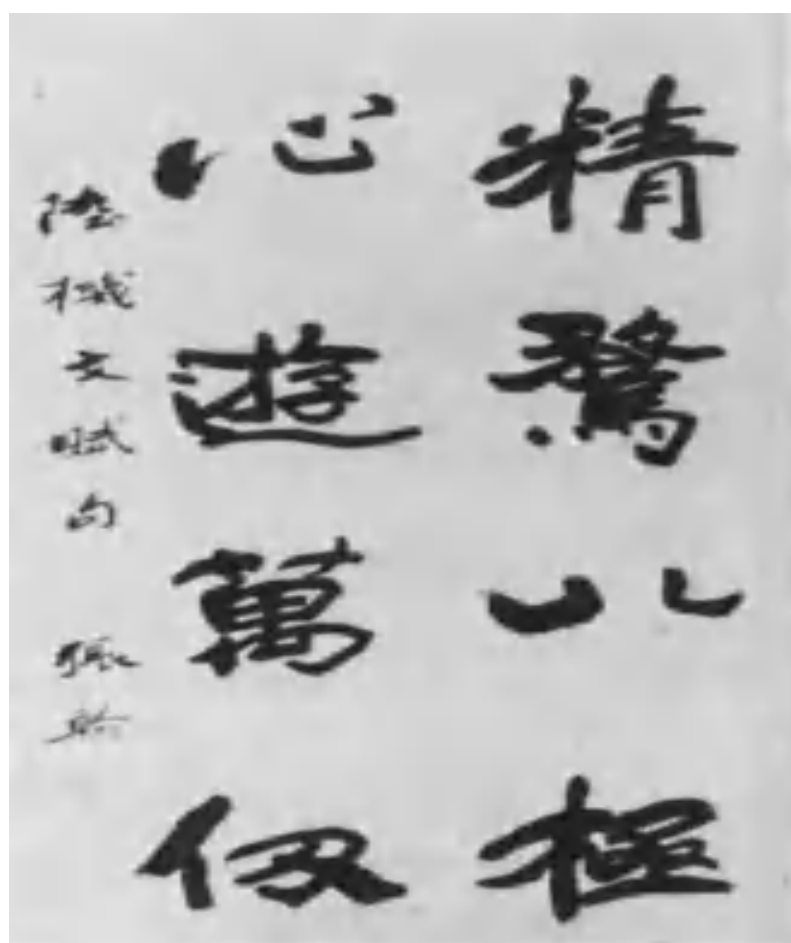 精騖八極
心遊萬仞
陸機文賦句 張